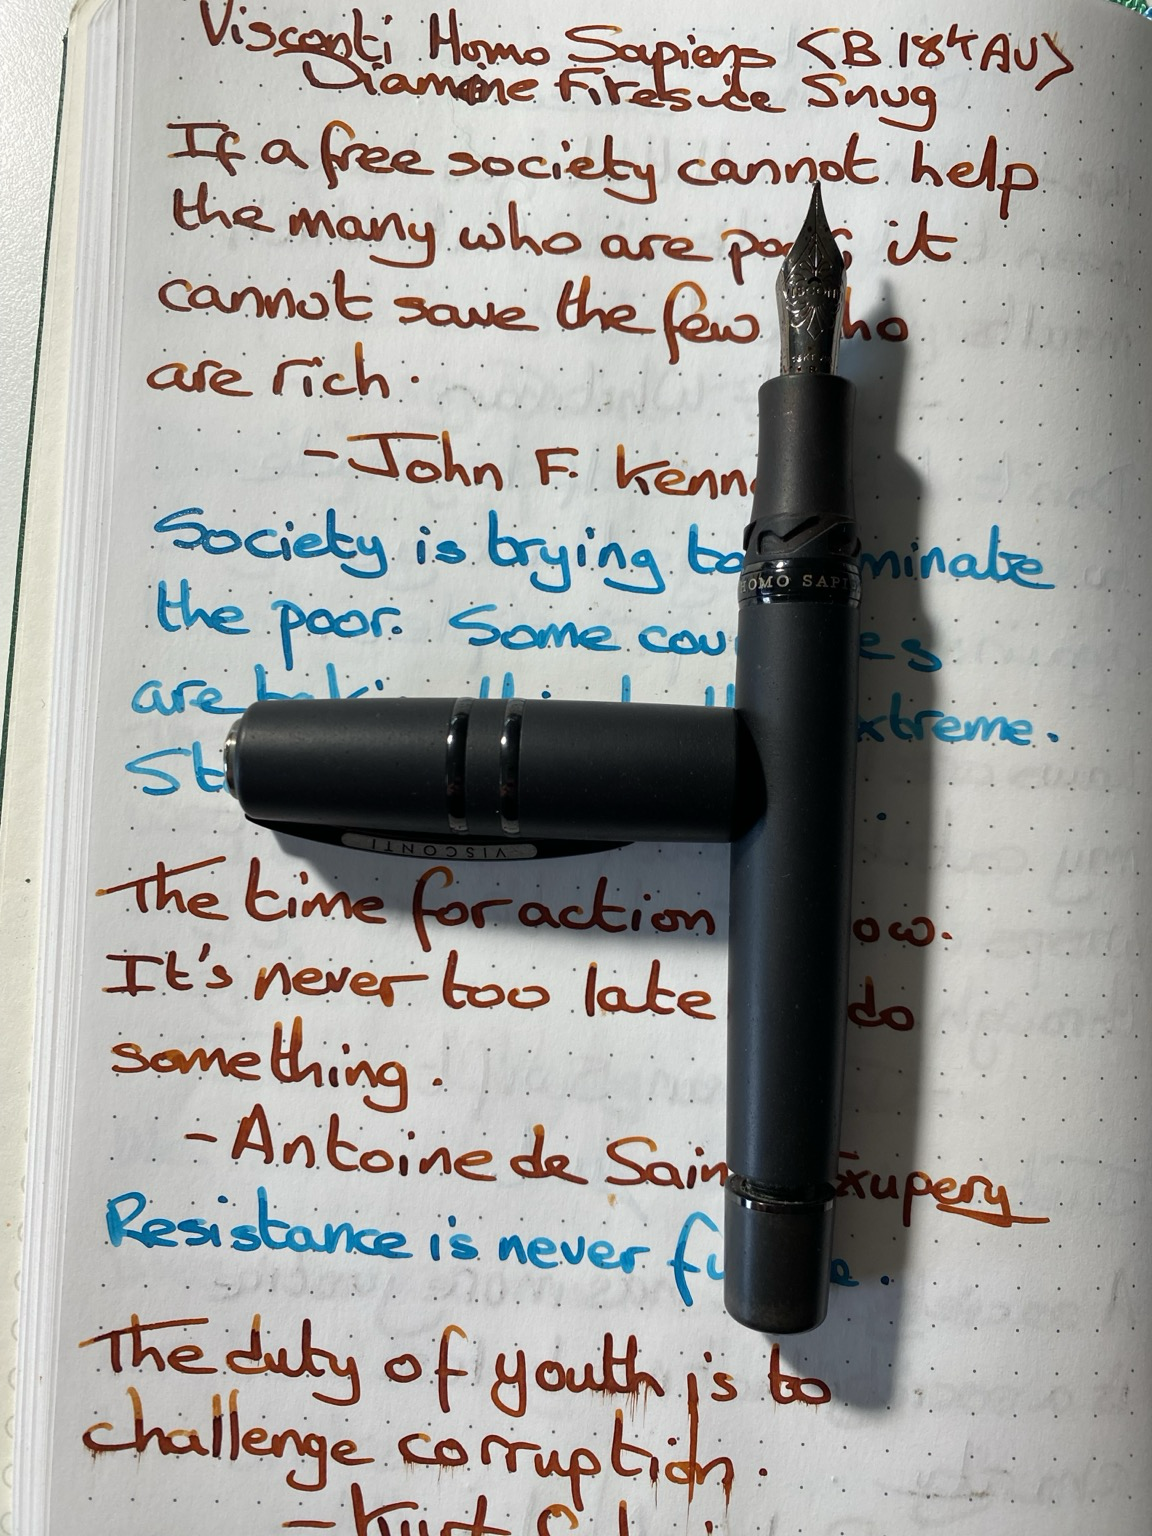 Visconti Homo Sapiens <B 18k AU>
Diamine Fireside Snug
If a free society cannot help
the many who are poor, it
cannot save the few who
are rich.
- John F. Kenn
Society is trying to minate
the poor. Some es
are extreme.
The time for action ow.
It's never too late do
something.
- Antoine de Sain Exupery
Resistance is never fu e.
The duty of youth is to
challenge corruption.
- Kurt
VISCONTI
HOMO SAPIE
VISCONTI